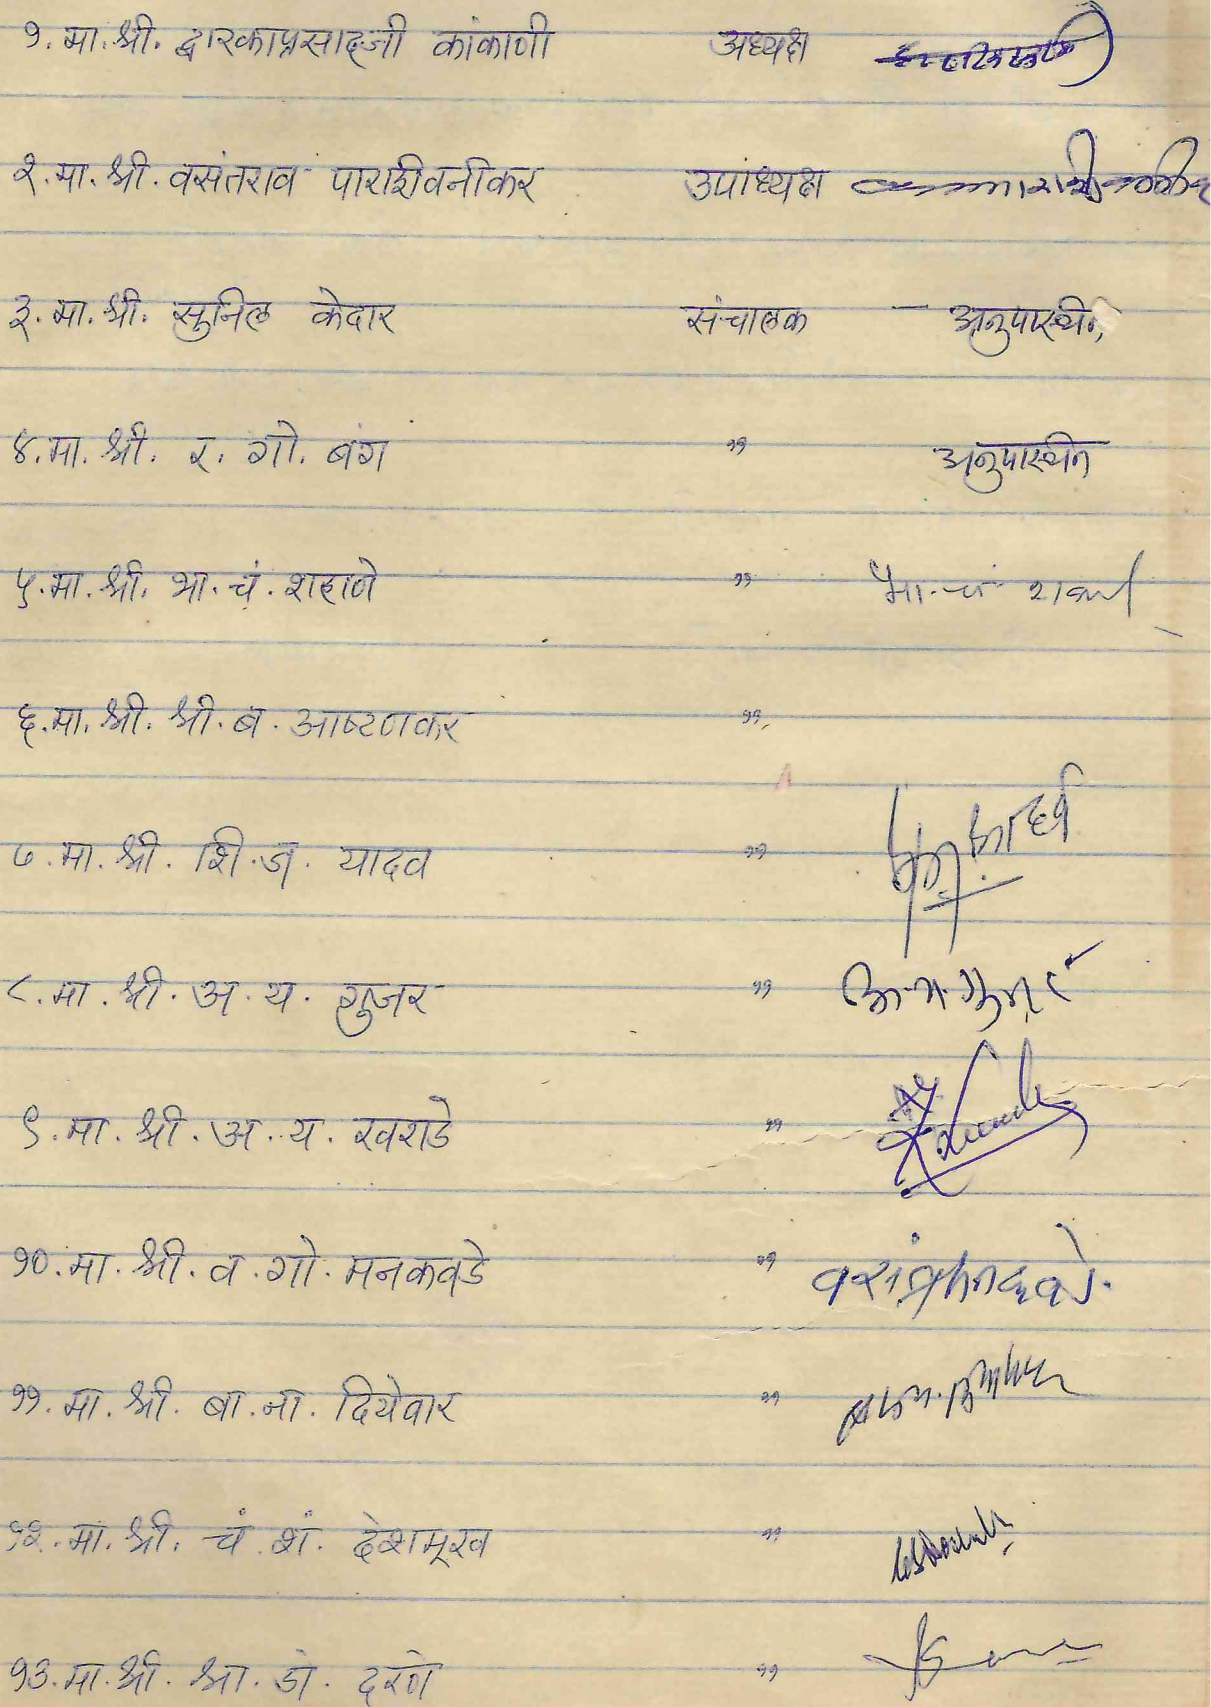 १. मा. श्री. द्वारकाप्रसादजी कांकाणी अध्यक्ष
२. मा. श्री. वसंतराव पाराशीवनीकर उपांध्यक्ष
३. मा. श्री. सुनिल केदार संचालक – अनुपास्थीत
४. मा. श्री. र. गो. बंग " अनुपास्थीत
५. मा. श्री. भा. चं. शहाणे " भा. चं
६. मा. श्री. श्री. ब. आष्टणकर "
७. मा. श्री. शि. ज. यादव "
८. मा. श्री. अ. य. गुजर "
९. मा. श्री. अ. य. खराडे "
१०. मा. श्री. व. गो. मनकवडे "
११. मा. श्री. बा. ना. दियेवार "
१२. मा. श्री. चं. शं. देशमूख "
१३. मा. श्री. श्रा. डो. दरणे "